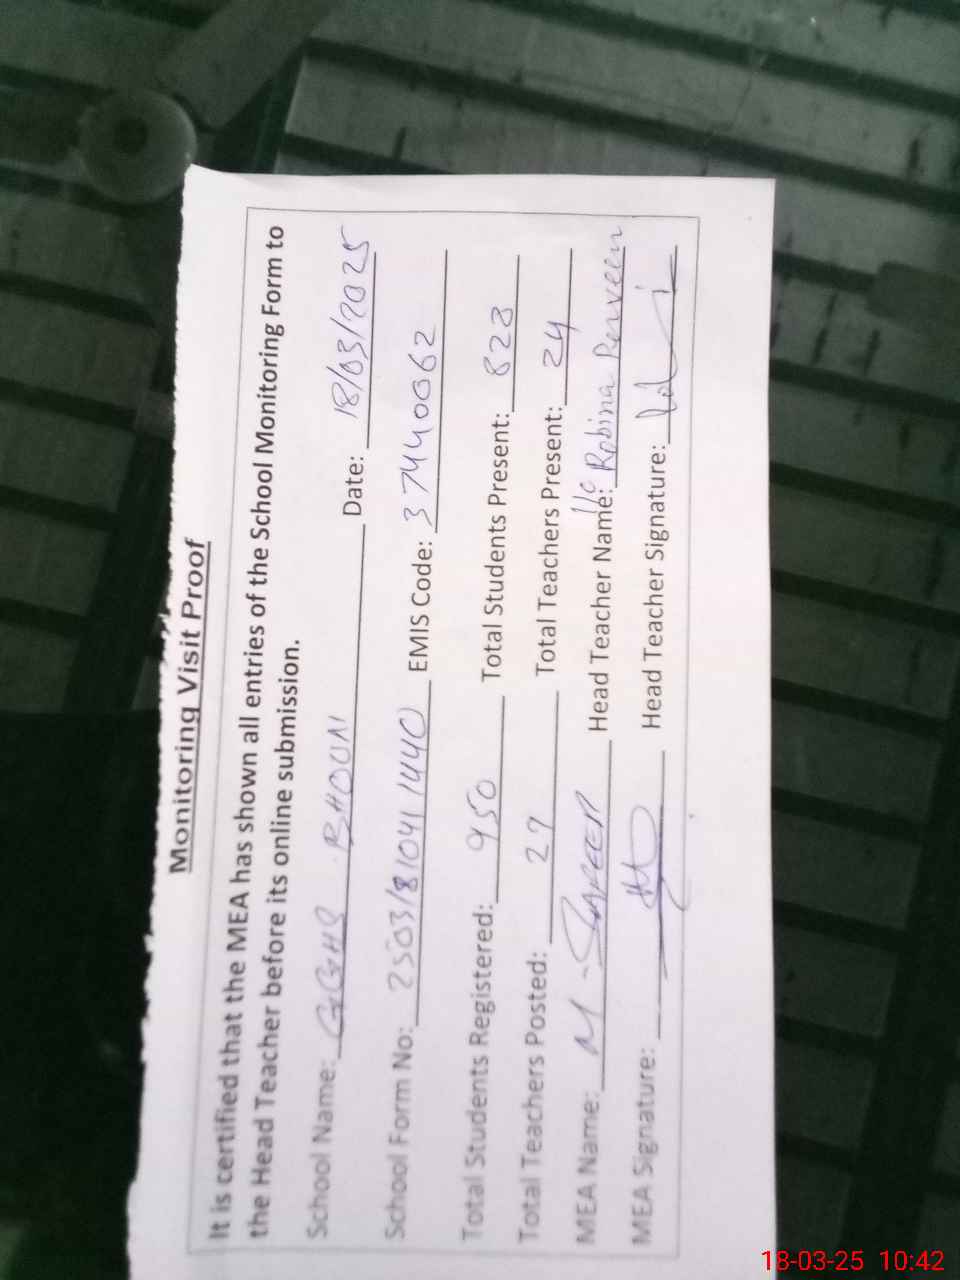 Monitoring Visit Proof
It is certified that the MEA has shown all entries of the School Monitoring Form to
the Head Teacher before its online submission.
School Name: GGHS BHOUN Date: 18/03/2025
School Form No: 2503/810411440 EMIS Code: 37440062
Total Students Registered: 950 Total Students Present: 828
Total Teachers Posted: 27 Total Teachers Present: 24
MEA Name: M - Head Teacher Name: Robina Perveen
MEA Signature: Head Teacher Signature:
18-03-25 10:42